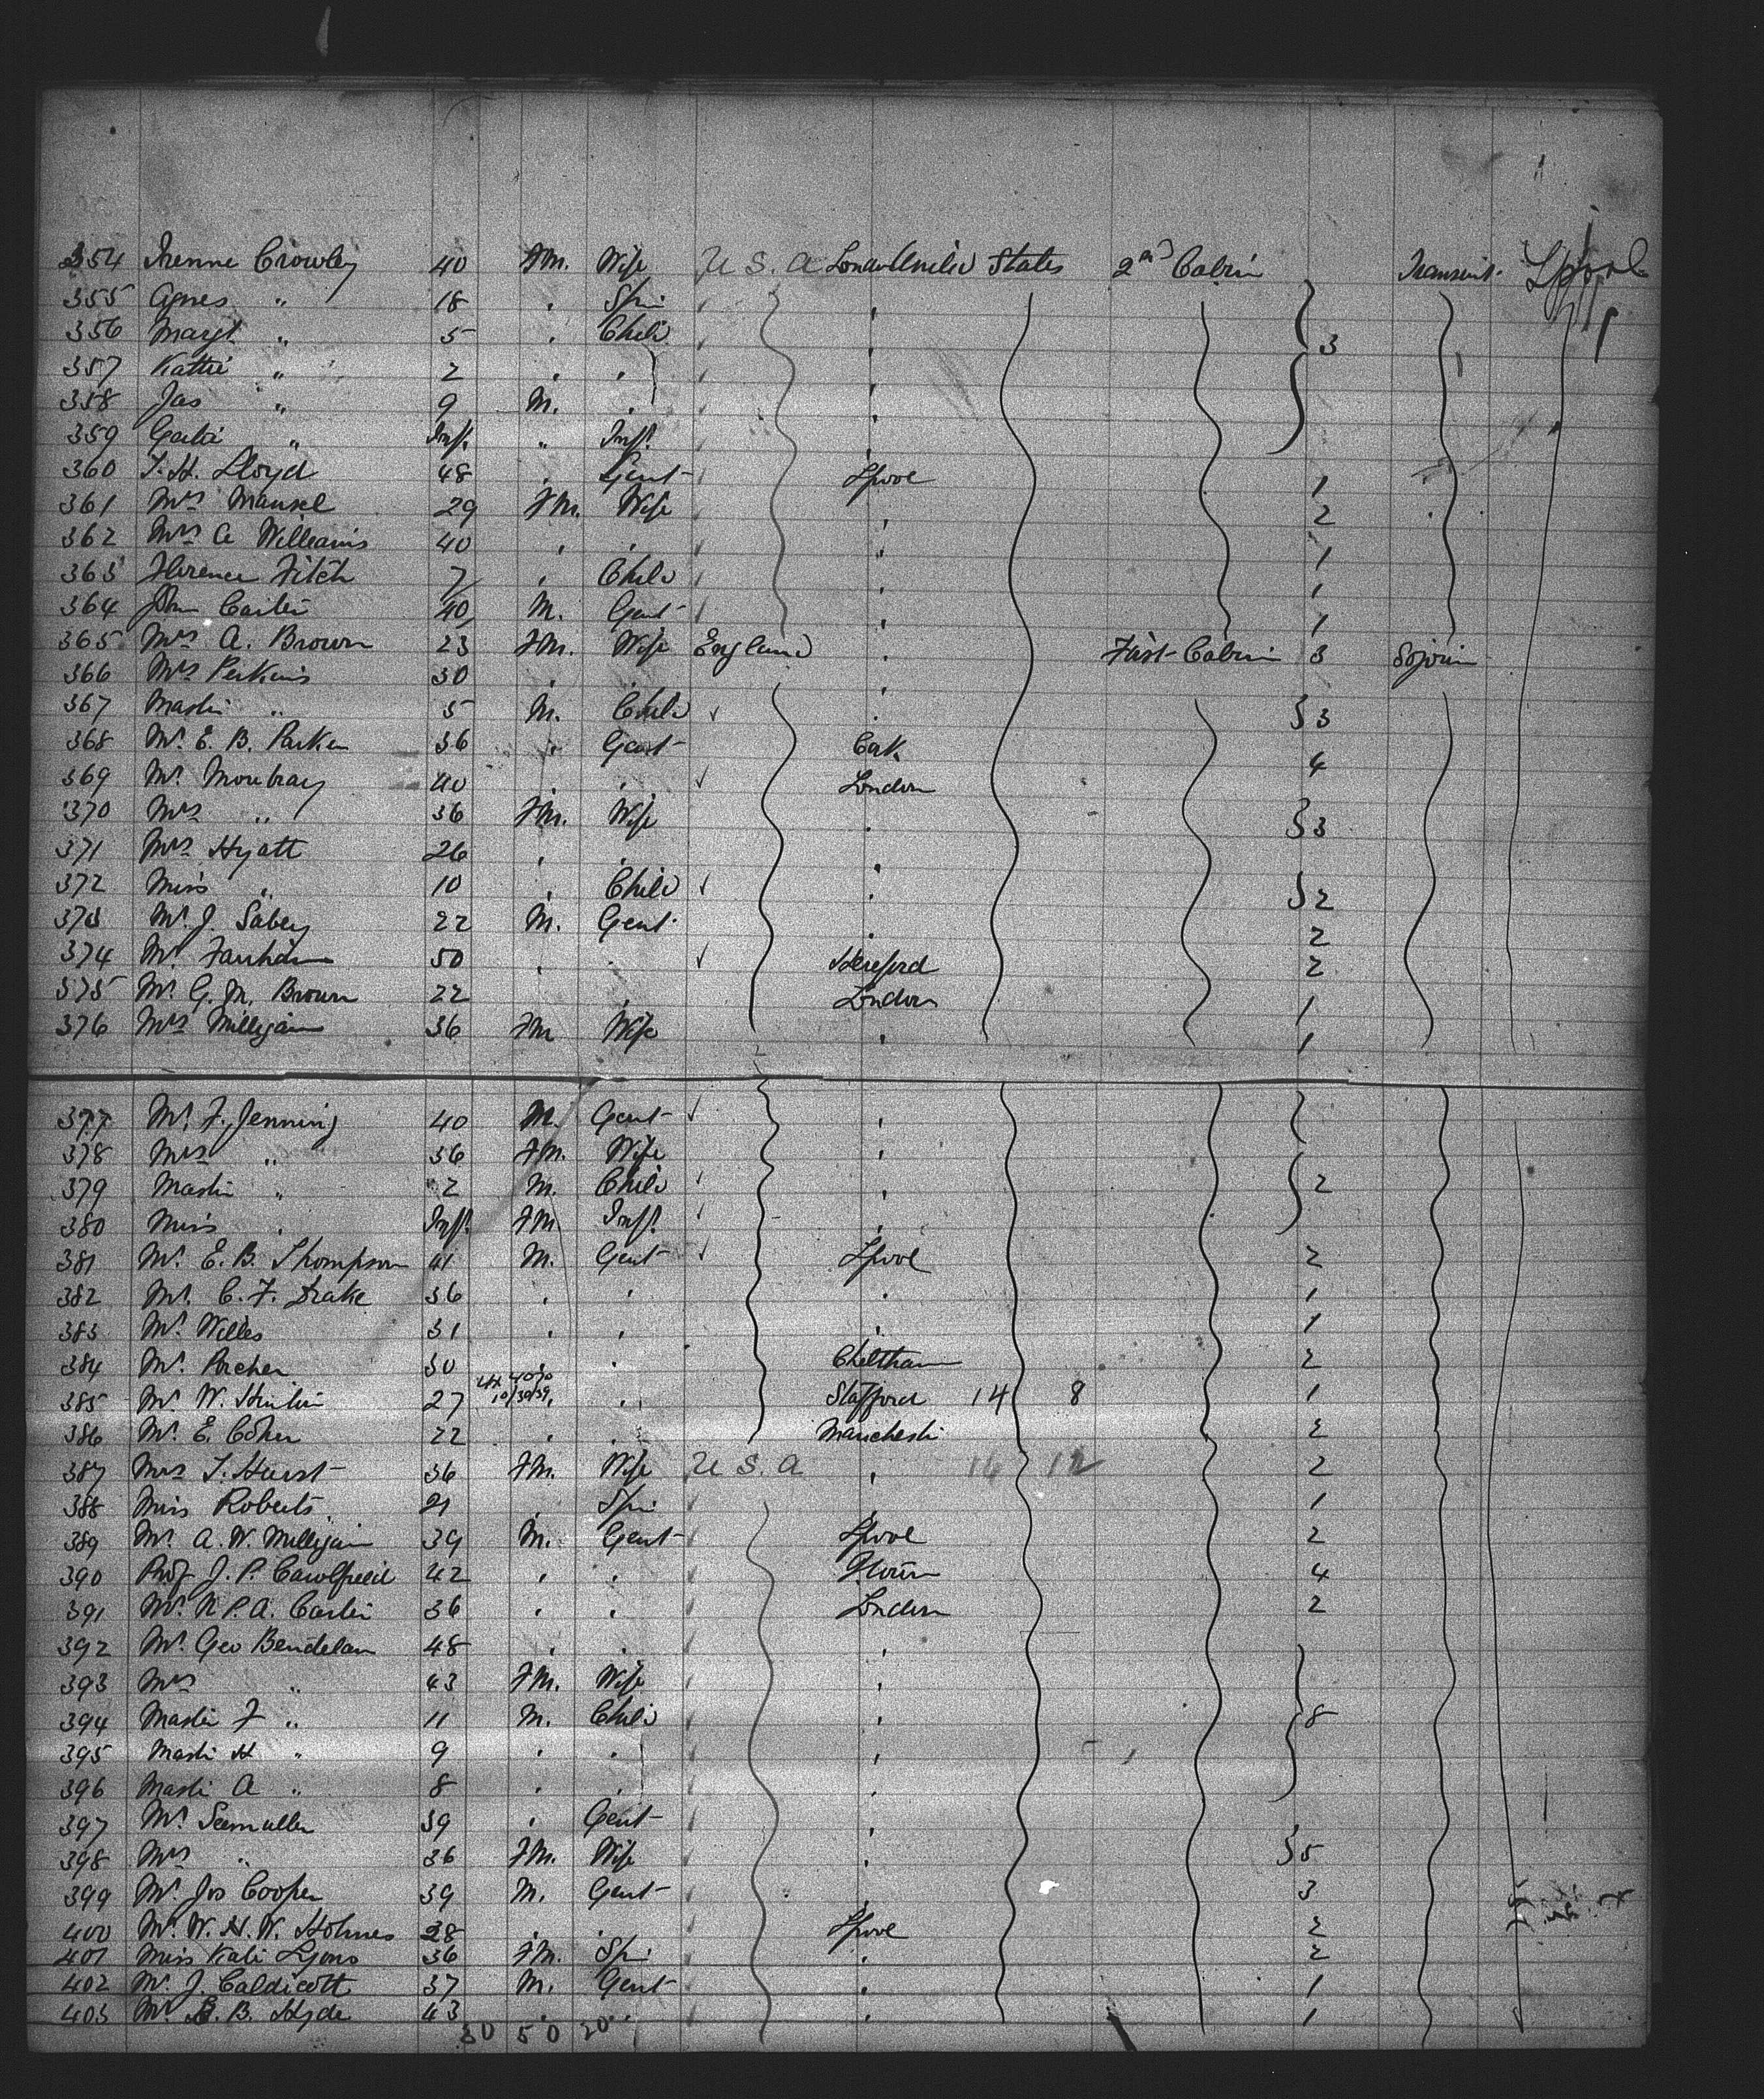 354 Irenne Crowley 40 Fm. Wife U S. A London United States 2nd Cabin Transit. Lpool
355 Agnes " 18 " Spin
356 Margt " 5 " Child 3
357 Kattie " 2 " "
358 Jas " 9 M. "
359 " Inft. " Inft.
360 T. H. Lloyd 48 " Gent Lpool 1
361 Mrs Mansel 29 Fm. Wife " 2
362 Mrs A Williams 40 " " " 1
363 Florence Fitch 7 " Child " 1
364 John Carter 40 M. Gent " 1
365 Mrs A. Brown 23 Fm. Wife England " First Cabin 3 Sojourn
366 Mrs Perkins 30 " " "
367 Master " 5 M. Child " 3
368 Mr. E. B. Parker 36 " Gent Cork 4
369 Mr. Moubray 40 " " London
370 Mrs " 36 Fm. Wife " 3
371 Mrs Hyatt 26 " " "
372 Miss " 10 " Child " 2
373 Mr. J. Sabey 22 M. Gent " 2
374 Mr. Farnham 50 " " Hereford 2
375 Mr. G. M. Brown 22 " London 1
376 Mrs Milligan 36 Fm Wife " 1
377 Mr. F. Jenning 40 M. Gent "
378 Mrs " 36 Fm. Wife "
379 Master " 2 M. Child " 2
380 Miss " Inft. Fm. Inft. "
381 Mr. E. B. Thompson 41 M. Gent Lpool 2
382 Mr. C. F. Drake 36 " " " 1
383 Mr. Willes 31 " " " 1
384 Mr. Archer 30 " " Cheltham 2
385 Mr. W. 27 " " Stafford 14 8 1
386 Mr. E. Cohen 22 " " Manchester 2
387 Mrs T. Hurst 36 Fm. Wife U S. A " 16 12 2
388 Miss Roberts 21 " Spin " 1
389 Mr. A. W. Milligan 39 M. Gent Lpool 2
390 Prof J. P. 42 " " 4
391 Mr. N P. A. Carter 36 " " London 2
392 Mr. Geo Bendelan 48 " " "
393 Mrs " 43 Fm. Wife "
394 Master F " 11 M. Child " 8
395 Master H " 9 " " "
396 Master A " 8 " " "
397 Mr. Seemuller 39 " Gent "
398 Mrs " 36 Fm. Wife " 5
399 Mr. Jos Cooper 39 M. Gent " 3
400 Mr. W. H. W. Holmes 28 " " Lpool 2
401 Miss Kate Lyons 36 Fm. Spin " 2
402 Mr. J. Caldicott 37 M. Gent " 1
403 Mr. B. B. Hyde 43 " " " 1
30 50 20